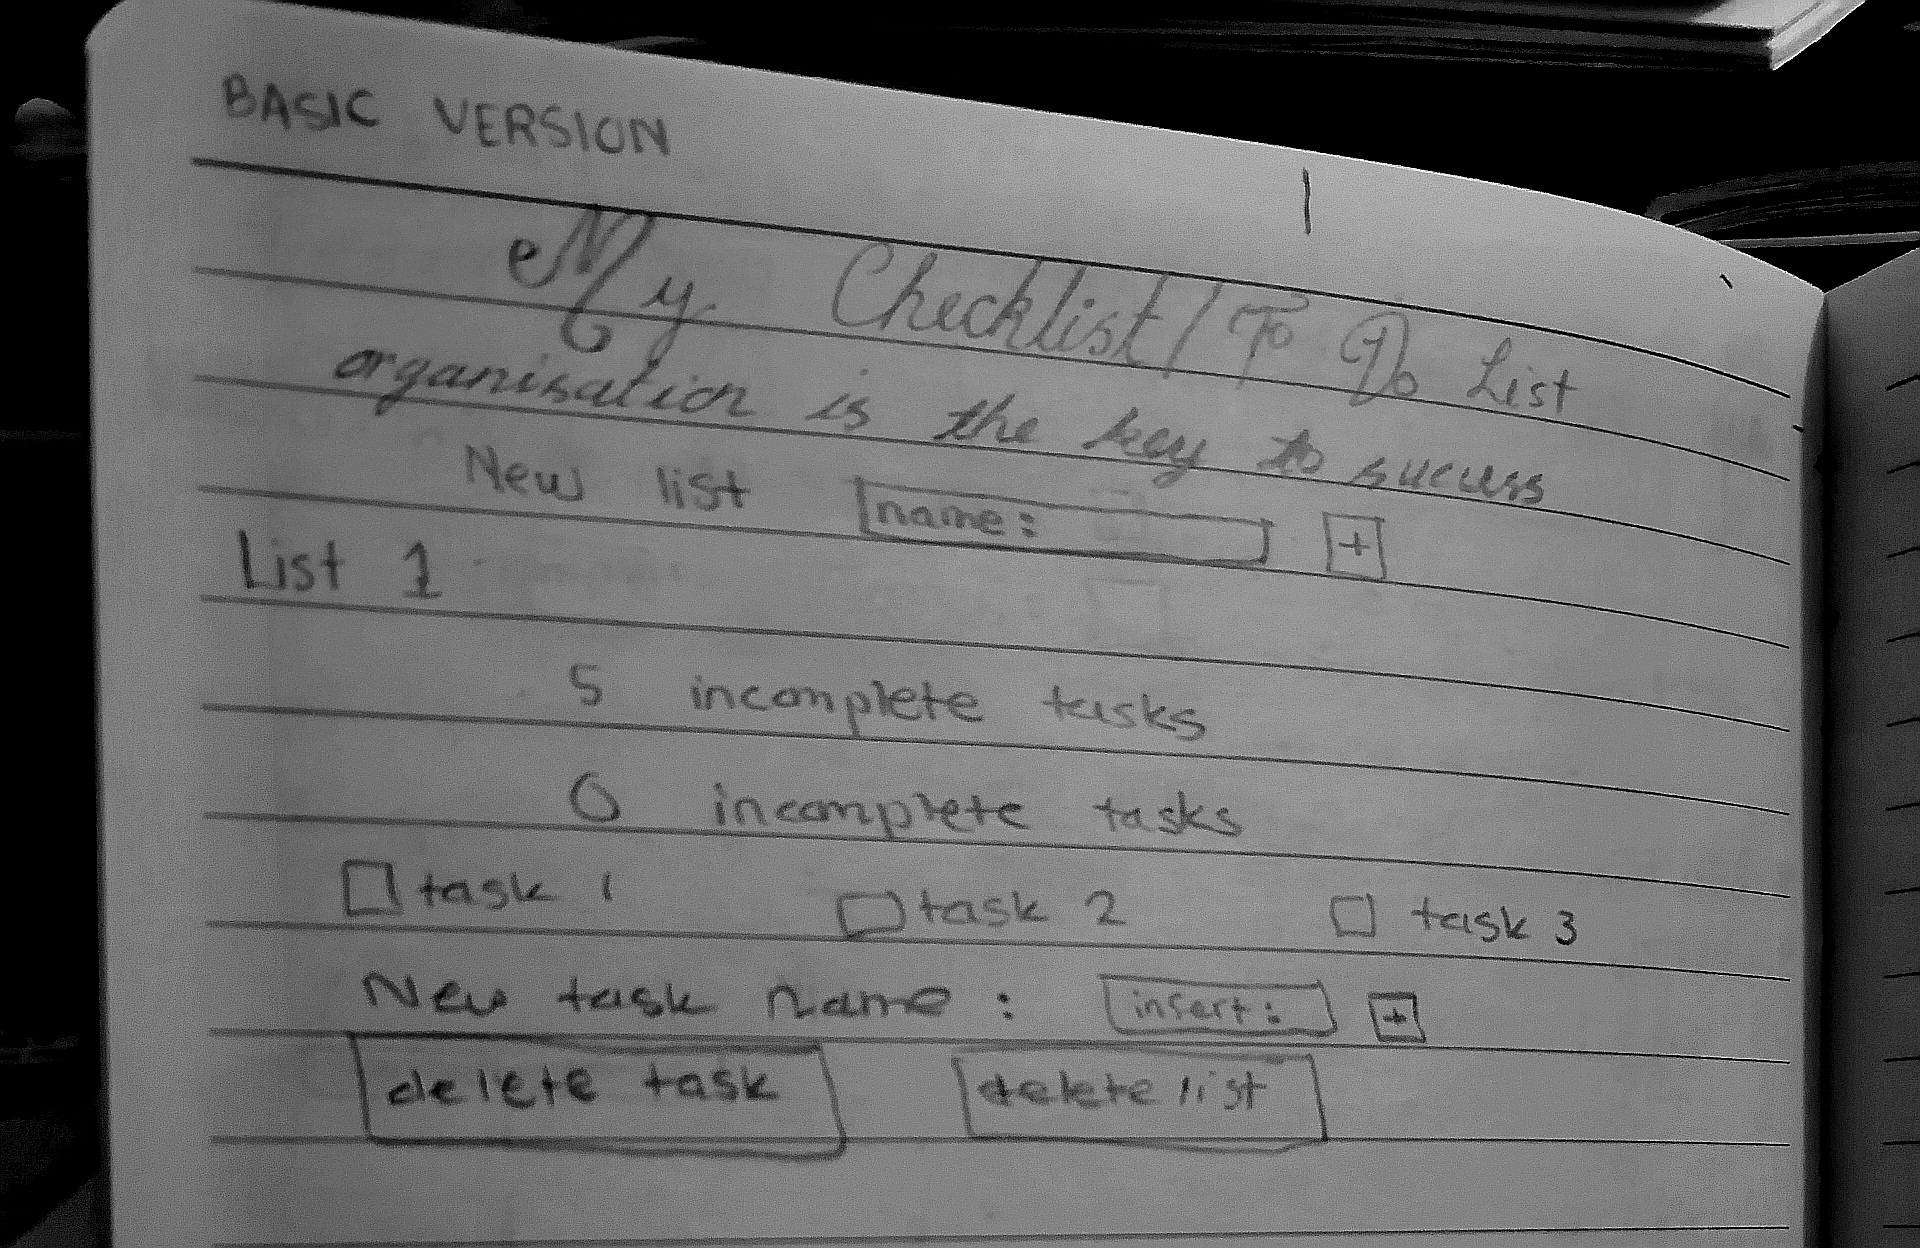 BASIC VERSION
My Checklist / To Do List
organisation is the key to success
New list name: +
List 1
5 incomplete tasks
0 incomplete tasks
task 1 task 2 task 3
New task name : insert: +
delete task delete list